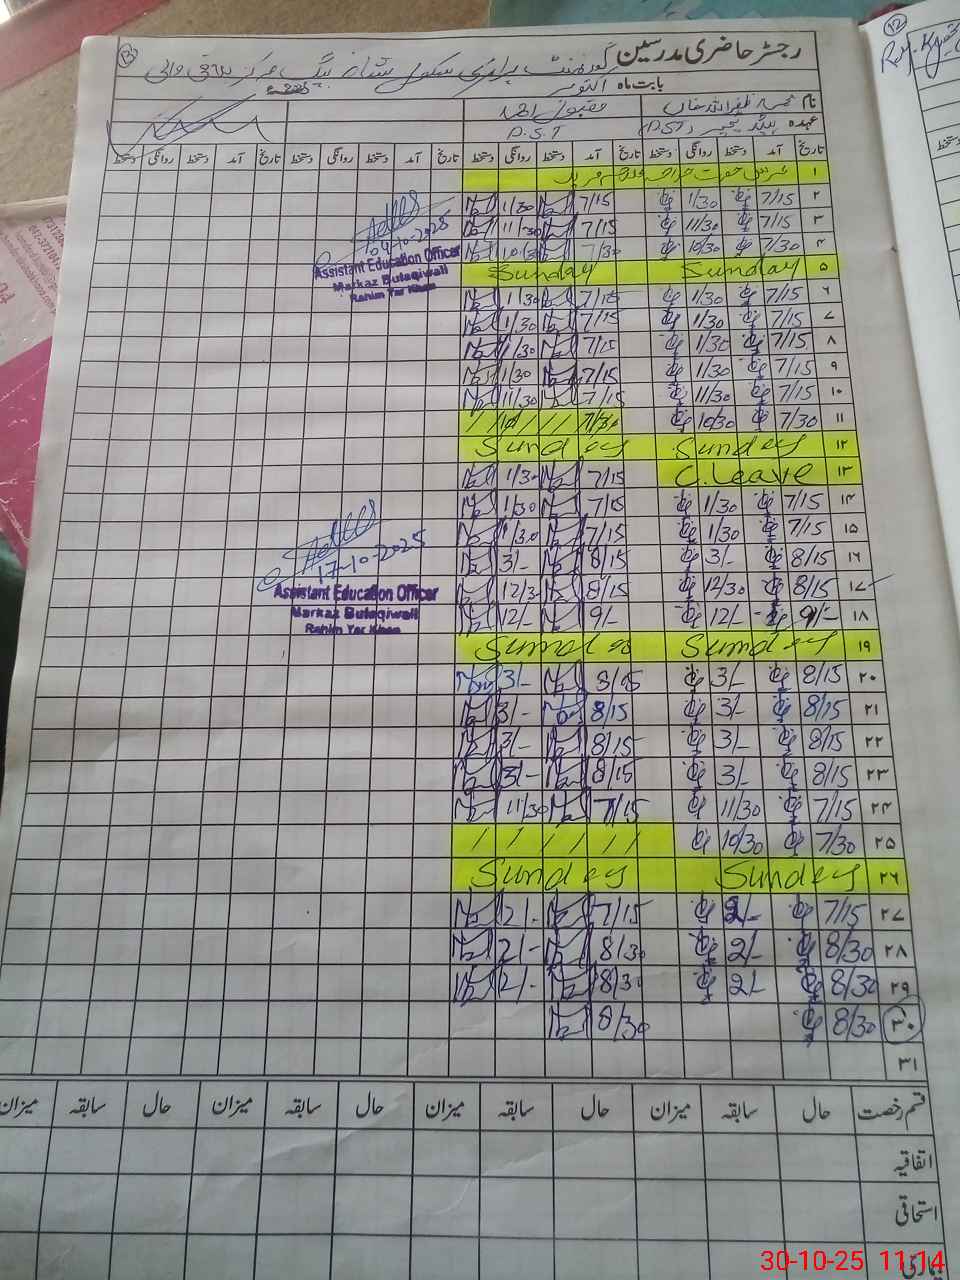 رجسٹر حاضری مدرسین گورنمنٹ پرائمری سکول
بابت ماہ اکتوبر 2025ء
نام محمد ظفر اللہ خان مقبول احمد
عہدہ ہیڈ ٹیچر (PST) P.S.T
تاریخ آمد دستخط روانگی دستخط تاریخ آمد دستخط روانگی دستخط تاریخ آمد دستخط روانگی دستخط تاریخ آمد دستخط روانگی دستخط
۱
۲ 7/15 1/30 7/15 1/30
۳ 7/15 11/30 7/15 11/30
۴ 7/30 10/30 7/30 10/30
۵ Sunday Sunday
۶ 7/15 1/30 7/15 1/30
۷ 7/15 1/30 7/15 1/30
۸ 7/15 1/30 7/15 1/30
۹ 7/15 1/30 7/15 1/30
۱۰ 7/15 11/30 7/15 11/30
۱۱ 7/30 10/30 7/30
۱۲ Sunday Sunday
۱۳ C.Leave 7/15 1/30
۱۴ 7/15 1/30 7/15 1/30
۱۵ 7/15 1/30 7/15 1/30
۱۶ 8/15 3/- 8/15 3/-
۱۷ 8/15 12/30 8/15 12/30
۱۸ 9/- 12/- 9/- 12/-
۱۹ Sunday Sunday
۲۰ 8/15 3/- 8/15 3/-
۲۱ 8/15 3/- 8/15 3/-
۲۲ 8/15 3/- 8/15 3/-
۲۳ 8/15 3/- 8/15 3/-
۲۴ 7/15 11/30 7/15 11/30
۲۵ 7/30 10/30 / / / / / /
۲۶ Sunday Sunday
۲۷ 7/15 2/- 7/15 2/-
۲۸ 8/30 2/- 8/30 2/-
۲۹ 8/30 2/- 8/30 2/-
۳۰ 8/30 8/30
۳۱
09-10-2025
Assistant Education Officer
Markaz Bulaqiwali
Rahim Yar Khan
17-10-2025
Assistant Education Officer
Markaz Bulaqiwali
Rahim Yar Khan
قسم رخصت حال سابقہ میزان حال سابقہ میزان حال سابقہ میزان حال سابقہ میزان
اتفاقیہ
استحقاقی
بیماری
13
12
30-10-25 11:14